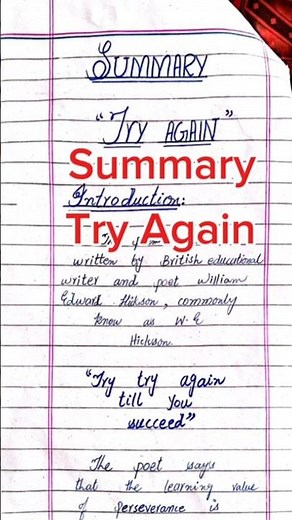 SUMMARY
"TRY AGAIN"
Summary
Introduction:
Try Again
written by British educational
writer and poet William
Edward Hickson, commonly
know as W.E
Hickson.
"Try try again
till you
succeed"
The poet says
that the learning value
of perseverance is